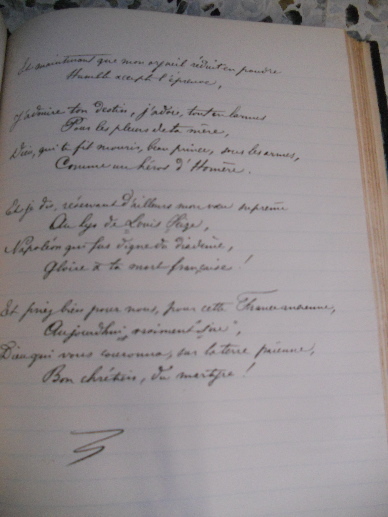 Et maintenant que mon orgueil réduit en poudre
Humble accepte l'épreuve,
J'admire ton destin, j'adore, tout en larmes
Pour les pleurs de ta mère,
Dieu, qui te fit mourir, beau prince, sous les armes,
Comme un héros d'Homère.
Et je dis, réservant d'ailleurs mon vœu suprême
Au lys de Louis Seize,
Napoléon qui fus digne du diadème,
Gloire à ta mort française !
Et priez bien pour nous, pour cette France ancienne,
Aujourdhui, vraiment "Sire",
Dieu qui vous couronna, sur la terre païenne,
Bon chrétien, du martyre !